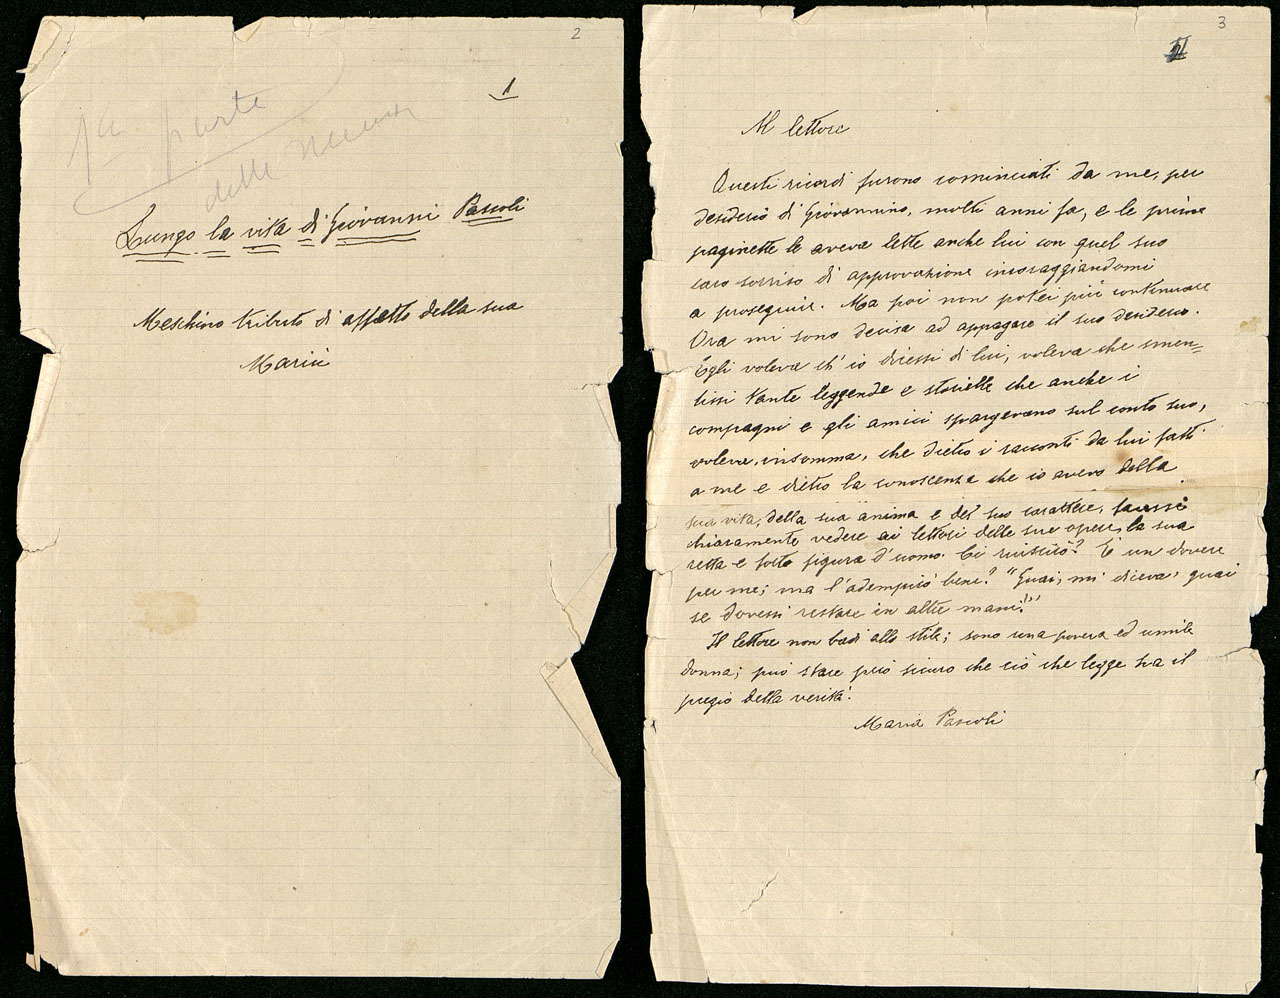 2
1
1a parte
delle
Lungo la vita di Giovanni Pascoli
Meschino tributo di affetto della sua
Mariù
3
Al lettore
Questi ricordi furono cominciati da me, per
desiderio di Giovannino, molti anni fa, e le prime
paginette le aveva lette anche lui con quel suo
caro sorriso di approvazione incoraggiandomi
a proseguire. Ma poi non potei più continuare
Ora mi sono decisa ad appagare il suo desiderio.
Egli voleva ch'io dicessi di lui, voleva che smen=
tissi tante leggende e storielle che anche i
compagni e gli amici spargevano sul conto suo,
voleva, insomma, che dietro i racconti da lui fatti
a me e dietro la conoscenza che io avevo della
sua vita, della sua anima e del suo carattere, facessi
chiaramente vedere ai lettori delle sue opere, la sua
retta e forte figura d'uomo. Ci riuscirò? È un dovere
per me; ma l'adempirò bene? "Guai, mi diceva, guai
se dovessi restare in altre mani!"
Il lettore non badi allo stile; sono una povera ed umile
donna; può stare però sicuro che ciò che legge ha il
pregio della verità.
Maria Pascoli